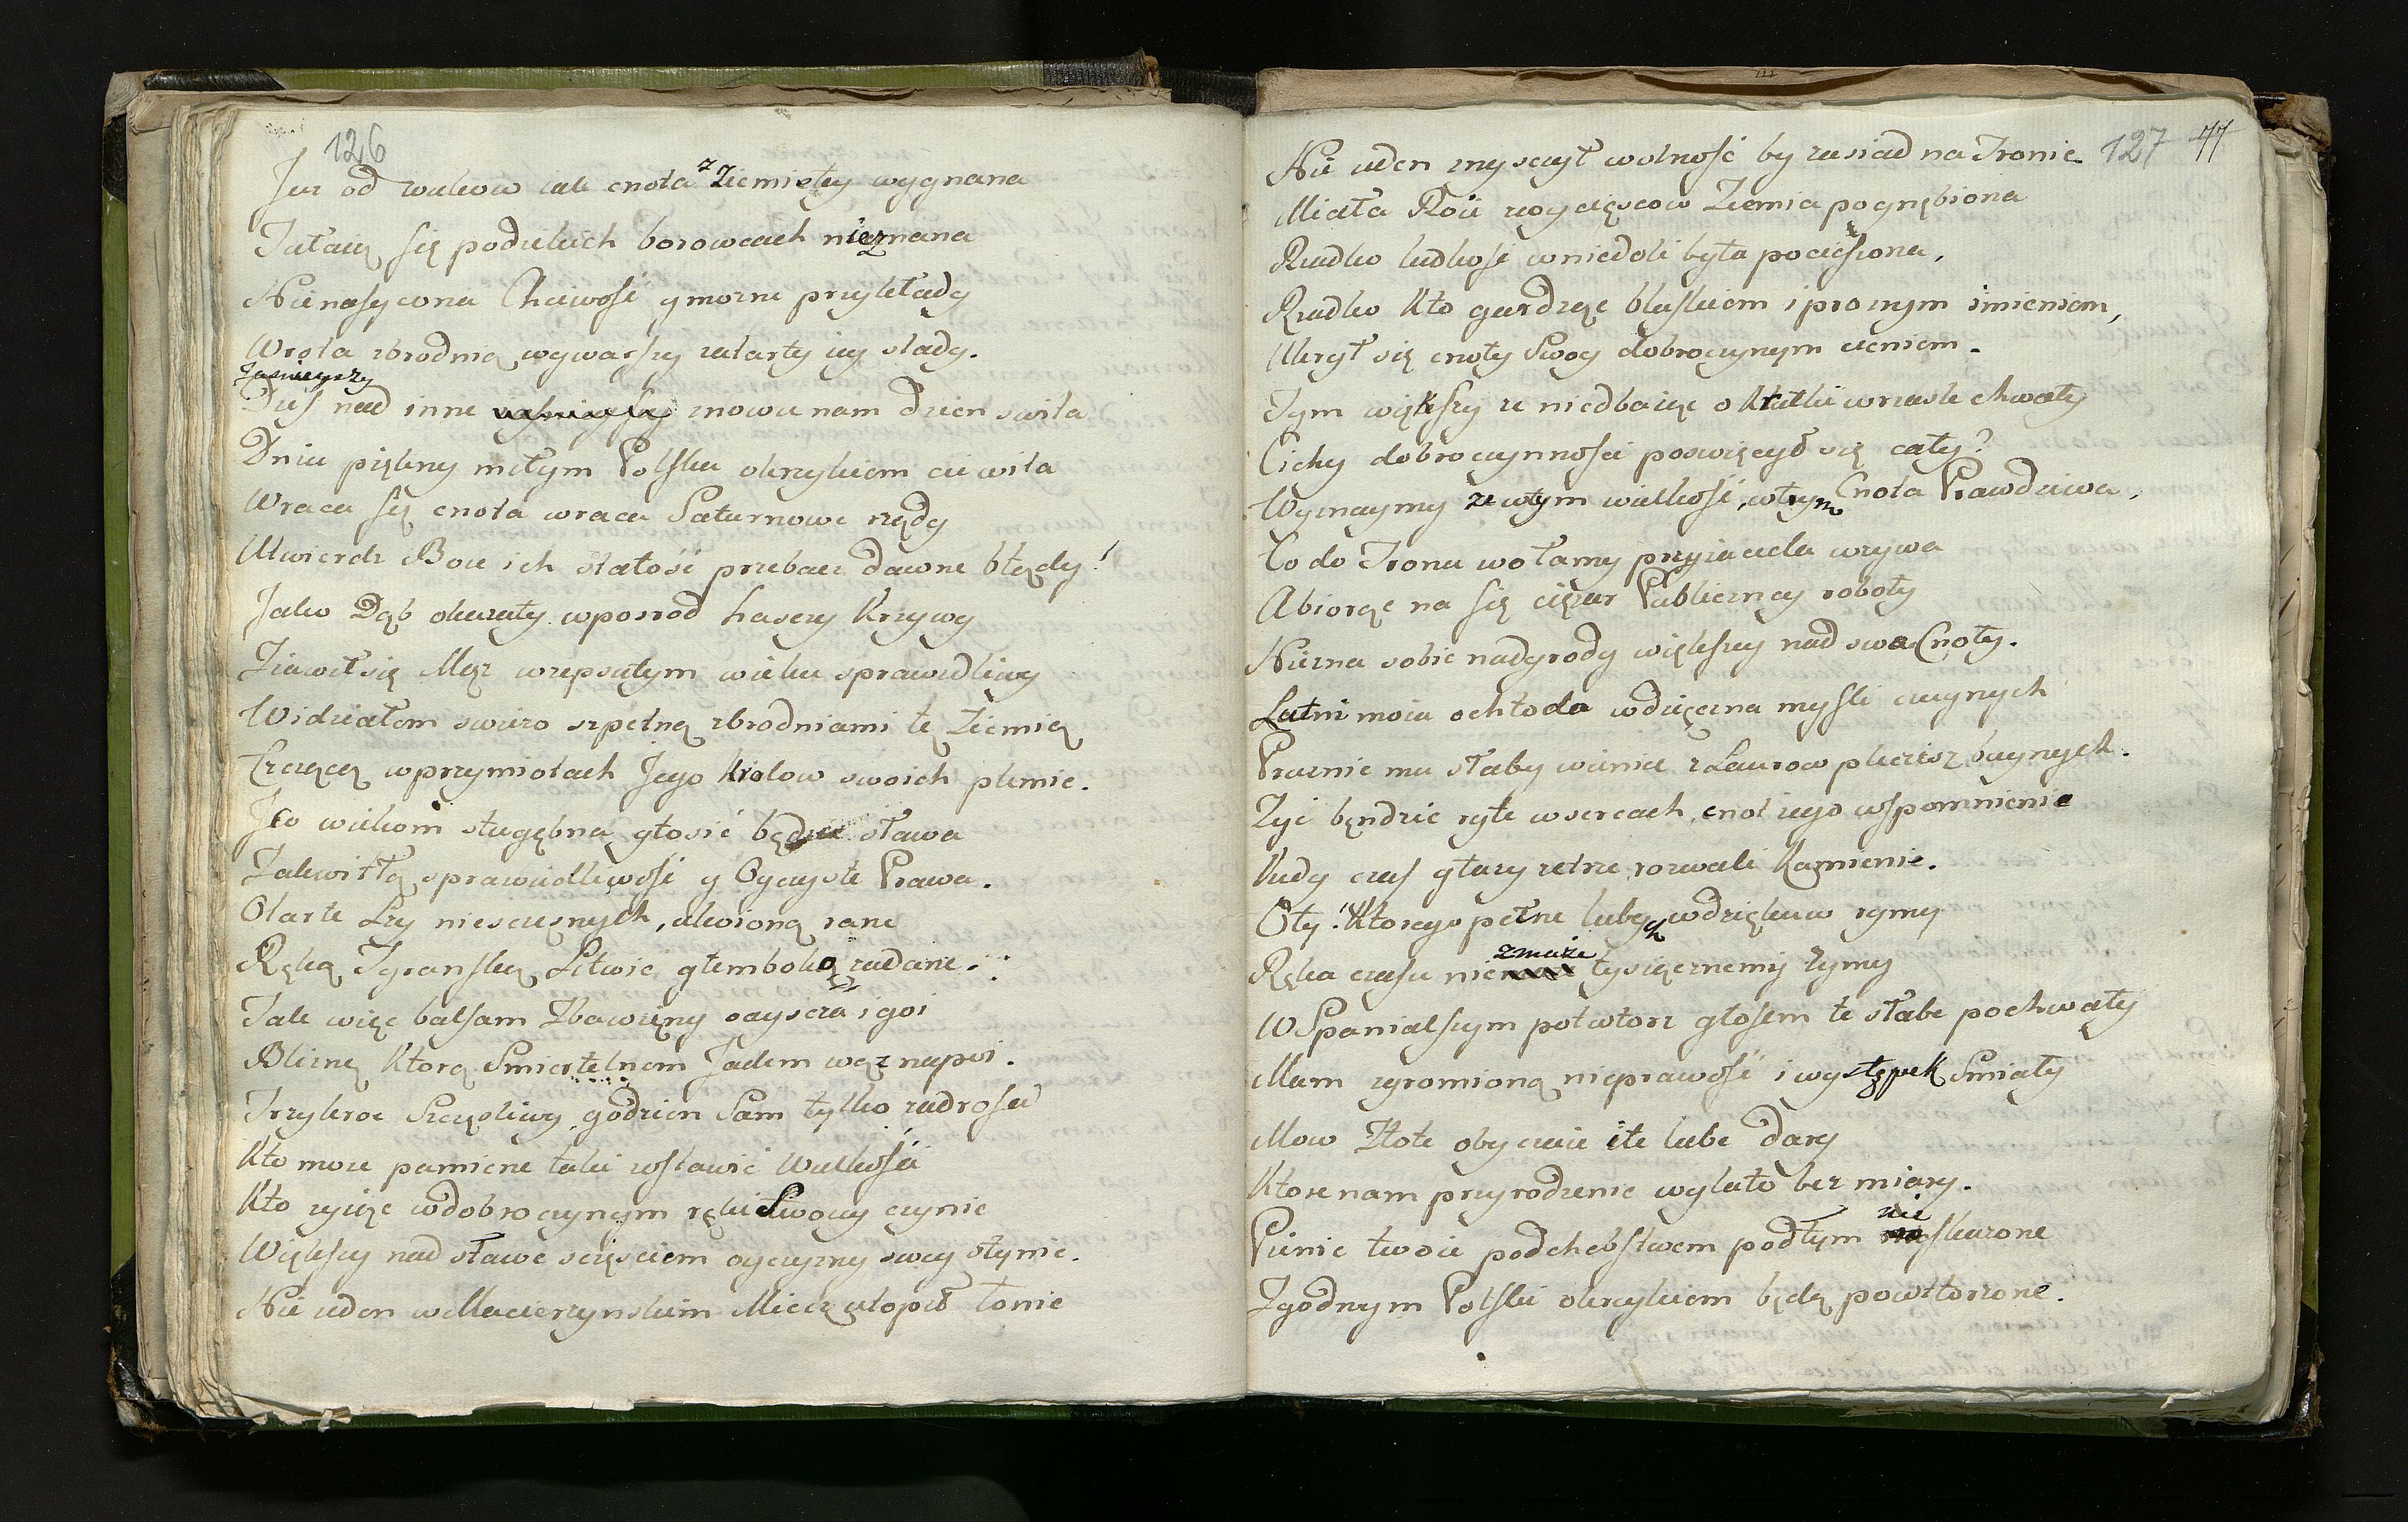 126
Juz od wiekow iak cnota z Ziemi tey wygnana
Tułaiąc się podzikich borowcach nieznana
Nienasycona Chciwość y mozne przykłady
Wrota zbrodnią wywarszy zatarły iey slady.
Jasnieyszy
Dziś nad inne znowu nam dzien swita
Dniu piękny miłym Polska okrzykiem cie wita
Wraca się cnota wraca Saturnowe rządy
Utwierdz Boze ich stałość przebacz dawne błędy!
Jako Dąb okazały wposrod haszczy krzywy
Ziawił się Mąz wzepsutym wieku sprawiedliwy
Widziałem swiezo szpetną zbrodniami tę Ziemię
Czczącą wprzymiotach Jego krolow swoich plemie.
Jeo wiekom stugębną głosić będzie sława
Zakwitłą sprawiedliwość y Oyczyste Prawa.
Otarte Łzy niesczęsnych, ukoioną rane
Ręką Tyranską Litwie głemboką zadane.
Tak więc balsam Zbawięny oczyscza i goi
Bliznę którą Smiertelnem Jadem wąz napoi.
Trzykroc Szczęsliwy godzien Sam tylko zadrości
Kto moze pamiene taki zostawić Wielkości
Kto zyiąc wdobroczynym ręki Swoiey czynie
Większy nad sławe sczęsciem oyczyzny swey słynie.
Nie ieden w Macierzynskim Miecz utopił łonie
127 77
Nie ieden zmysczył wolność by zasiad na Tronie
Miała Roie zwycięscow Ziemia pognębiona
Rzadko ludkość wniedoli była pocieszona,
Rzadko kto gardząc blaskiem i proznym imieniem,
Ukrył się cnoty Swoey dobroczynym cieniem.
Tym większy ze niedbaiąc o krótki wrzask chwały
Cichey dobroczynności poswięcył się cały?
Wyznaymy ze wtym wielkość, wtym Cnota Prawdziwa,
Co do Tronu wołamy przyiaciela wzywa
A biorąc na się ciężar Publiczney roboty
Niezna sobie nadgrody większey nad swe Cnoty.
Lutni moia ochłoda wdzięczna mysli czuynych
Proznie mu słaby wieniec z Laurow pleciesz buynych.
Zyć bęndzie ryte wsercach cnot iego wspomnienie
Kiedy czas głazy zetrze, rozwali kamienie.
Oty! Ktorego pełne lubych wdzięków rymy
zmaże
Ręka czasu nie tysięcznemij Zymy
WSpanialszym potwtorz głosem te słabe pochwały
Mam zgromioną nieprawość i występek Smiały
Mow Złote obyczaie ite lube dary
Które nam przyrodzenie wylało bez miary.
nie
Pienie twoie podchebstwem podłym skarzone
Zgodnym Polski okrzykiem będą powtorzone.